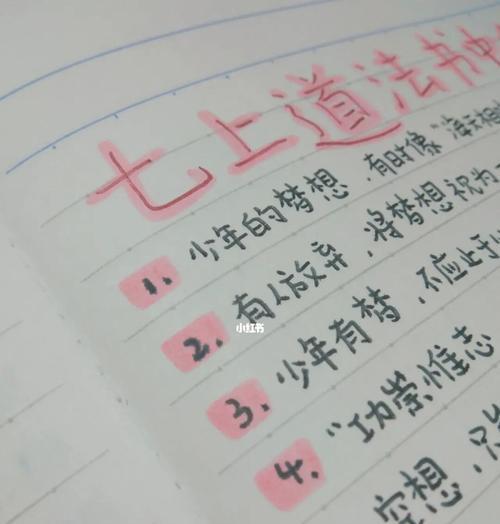 七上道法书中
1. 少年的梦想,有时像"海天相
2. 有人放弃,将梦想视为
3. 少年有梦,不应止于
4. "功崇惟志
空想,只
小红书